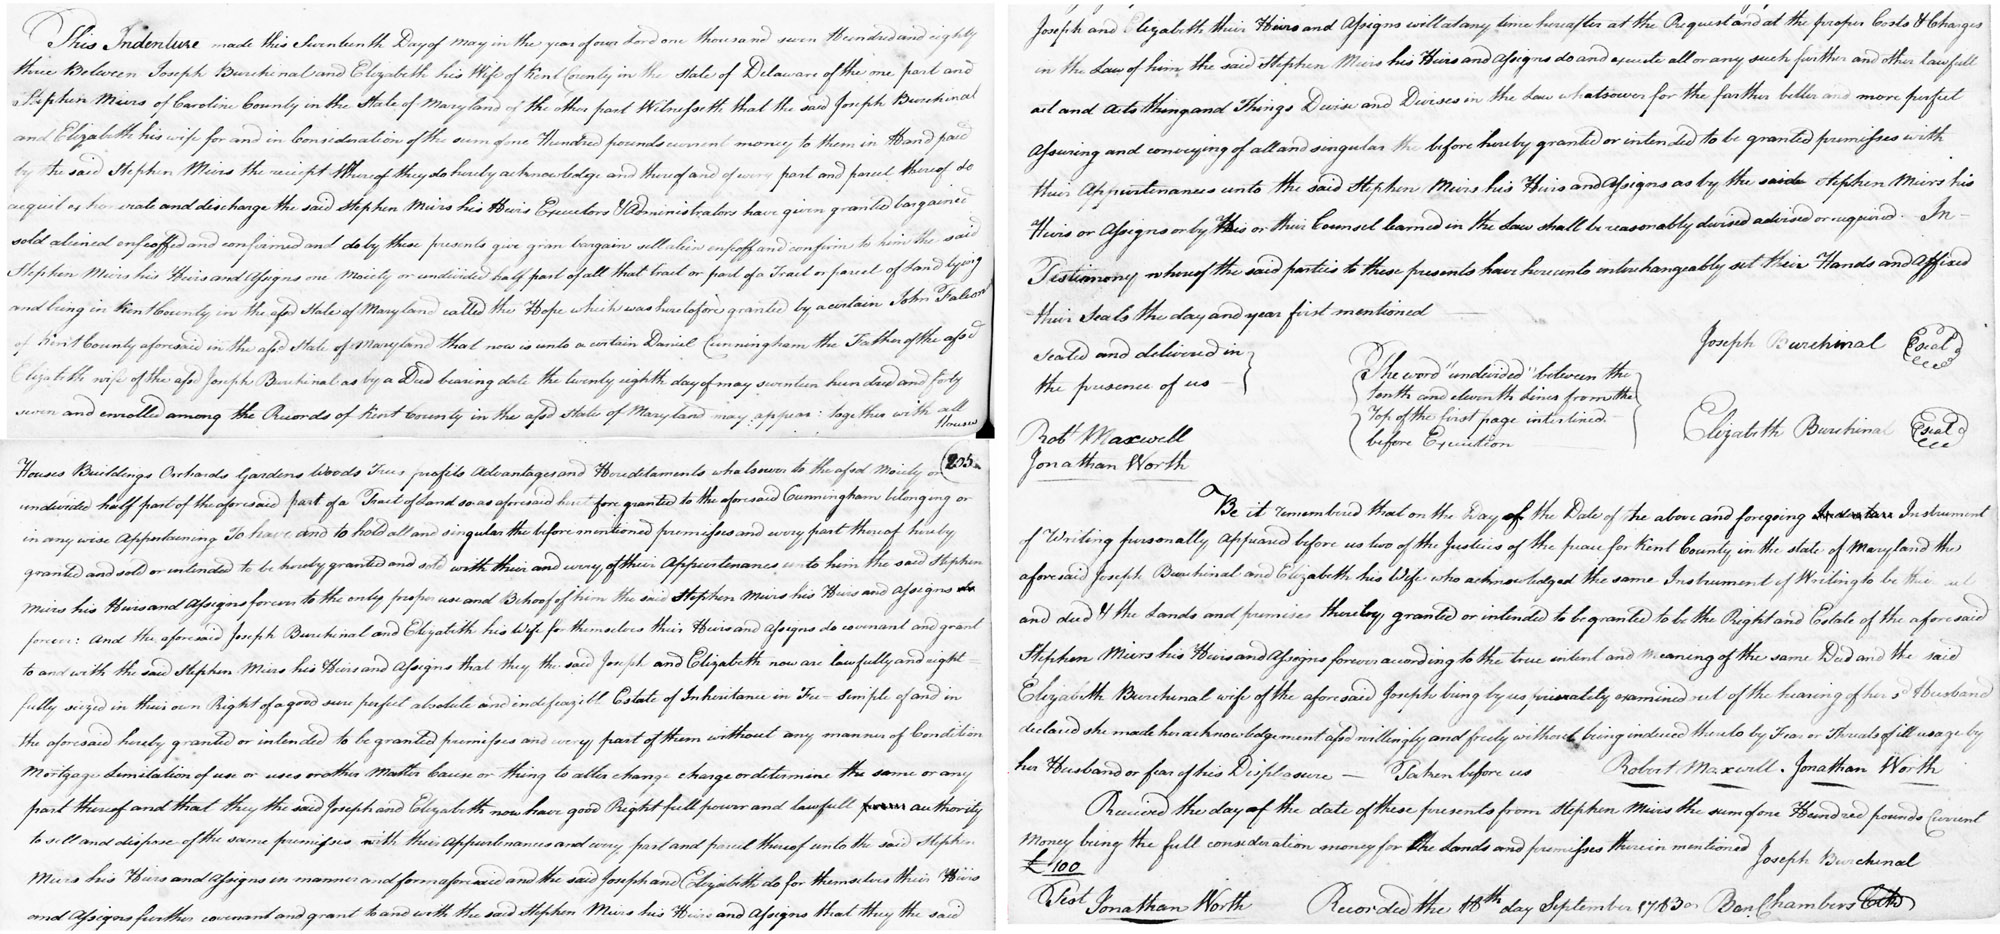 This Indenture made this Seventeenth Day of May in the year of our Lord one thousand seven Hundred and eighty
three Between Joseph Burchinal and Elizabeth his Wife of Kent County in the State of Delaware of the one part and
Stephen Miers of Caroline County in the State of Maryland of the other part Witnesseth that the said Joseph Burchinal
and Elizabeth his wife for and in Consideration of the sum of one Hundred pounds current money to them in Hand paid
by the said Stephen Miers the reciept thereof they do hereby acknowledge and thereof and of every part and parcel thereof do
acquit exhonerate and discharge the said Stephen Miers his Heirs Executors & Administrators have given granted bargained
sold aliened enfeoffed and confirmed and do by these presents give gran bargain sell alien enfeoff and confirm to him the said
Stephen Miers his Heirs and Assigns one Moiety or undivided half part of all that tract or part of a Tract or parcel of Land lying
and being in Kent County in the afsd State of Maryland called the Hope which was heretofore granted by a certain John Falcon
of Kent County aforesaid in the afsd State of Maryland that now is unto a certain Daniel Cunningham the Father of the afsd
Elizabeth wife of the afsd Joseph Burchinal as by a Deed bearing date the twenty eighth day of may seventeen hundred and forty
seven and enrolled among the Records of Kent County in the afsd state of Maryland may appear: together with all
Houses
205
Houses Buildings Orchards Gardens Woods Trees profits Advantages and Hereditaments whatsoever to the afsd Moiety or
undivided half part of the aforesaid part of a Tract of Land so as aforesaid heretofore granted to the aforesaid Cunningham belonging or
in any wise Appertaining To have and to hold all and singular the before mentioned premisses and every part thereof hereby
granted and sold or intended to be hereby granted and sold with their and every of their Appurtenances unto him the said Stephen
Miers his Heirs and Assigns forever to the only proper use and Behoof of him the said Stephen Miers his Heirs and Assigns
forever: And the aforesaid Joseph Burchinal and Elizabeth his Wife for themselves their Heirs and Assigns do covenant and grant
to and with the said Stephen Miers his Heirs and Assigns that they the said Joseph and Elizabeth now are lawfully and right=
fully seized in their own Right of a good sure perfect absolute and indefeazible Estate of Inheritance in Fee-Simple of and in
the aforesaid hereby granted or intended to be granted premisses and every part of them without any manner of Condition
Mortgage Limitation of use or uses or other Matter Cause or thing to alter change charge or determine the same or any
part thereof and that they the said Joseph and Elizabeth now have good Right full power and lawfull authority
to sell and dispose of the same premisses with their Appurtenances and every part and parcel thereof unto the said Stephen
Miers his Heirs and Assigns in manner and form aforesaid and the said Joseph and Elizabeth do for themselves their Heirs
and Assigns further covenant and grant to and with the said Stephen Miers his Heirs and Assigns that they the said
Joseph and Elizabeth their Heirs and Assigns will at any time hereafter at the Request and at the proper Costs & Charges
in the Law of him the said Stephen Miers his Heirs and Assigns do and execute all or any such further and other lawfull
act and Acts thing and Things Devise and Devises in the Law whatsoever for the farther better and more perfect
Assuring and conveying of all and singular the before hereby granted or intended to be granted premisses with
their Appurtenances unto the said Stephen Miers his Heirs and Assigns as by the saide Stephen Miers his
Heirs or Assigns or by His or their Counsel learned in the Law shall be reasonably devised advised or required. In-
Testimony whereof the said parties to these presents have hereunto interchangeably set their Hands and Affixed
their Seals the day and year first mentioned
Joseph Burchinal Seal
Sealed and delivered in
the presence of us
The word "undivided" between the
tenth and eleventh lines from the
Top of the first page interlined
before Execution
Elizabeth Burchinal Seal
Robt Maxwell
Jonathan Worth
Be it remembered that on the Day of the Date of the above and foregoing Indenture Instrument
of Writing personally Appeared before us two of the Justices of the peace for Kent County in the state of Maryland the
aforesaid Joseph Burchinal and Elizabeth his Wife who acknowledged the same Instrument of Writing to be their act
and deed & the Lands and premises thereby granted or intended to be granted to be the Right and Estate of the aforesaid
Stephen Miers his Heirs and Assigns forever according to the true intent and Meaning of the same Deed and the said
Elizabeth Burchinal wife of the aforesaid Joseph being by us privately examined out of the hearing of her sd Husband
declared she made her acknowledgement afsd willingly and freely without being induced thereto by Fear or Threats of ill usage by
her Husband or fear of his Displeasure — Taken before us Robert Maxwell. Jonathan Worth
Received the day of the date of these presents from Stephen Miers the sum of one Hundred pounds Current
Money being the full consideration money for the Lands and premisses therein mentioned Joseph Burchinal
£100
Test Jonathan Worth Recorded the 18th day September 1783 Ben Chambers Clk